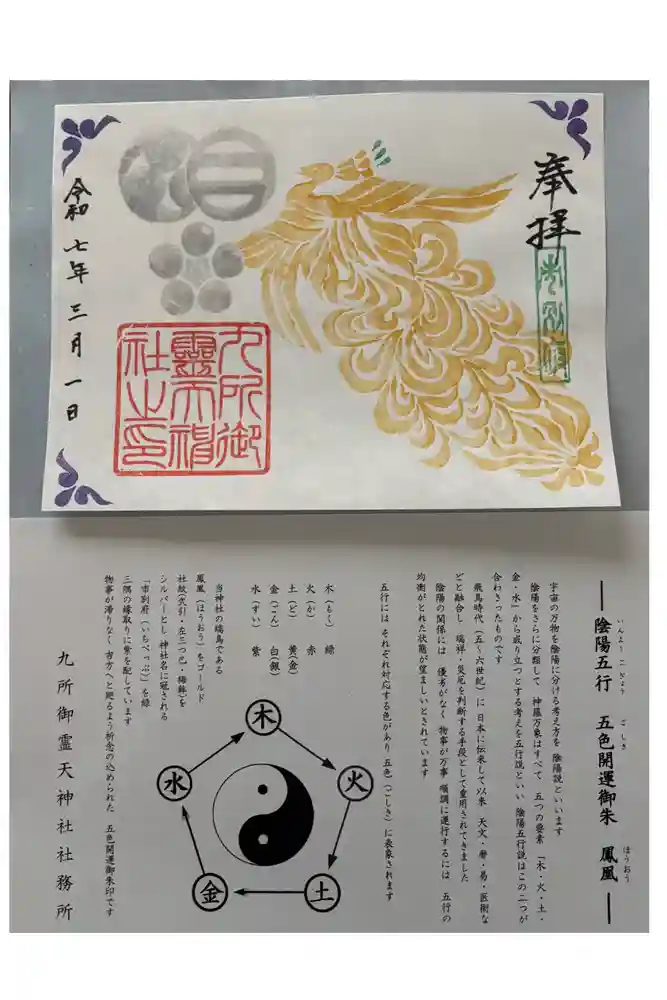 奉拝
市別府
九所御
靈天神
社之印
令和七年三月一日
陰陽五行 五色開運御朱 鳳凰
いんよう ごぎょう ごしき ほうおう
宇宙の万物を陰陽に分ける考え方を 陰陽説といいます
陰陽をさらに分類して 神羅万象はすべて 五つの要素 「木・火・土・
金・水」から成り立つとする考えを五行説といい 陰陽五行説はこの二つが
合わさったものです
飛鳥時代(五~六世紀)に 日本に伝来して以来 天文・暦・易・医術な
どと融合し 瑞祥・災厄を判断する手段として重用されてきました
陰陽の関係には 優劣がなく 物事が万事 順調に運行するには 五行の
均衡がとれた状態が望ましいとされています
五行には それぞれ対応する色があり 五色(ごしき)に表象されます
木(もく) 緑
火(か) 赤
土(ど) 黄(金)
金(ごん) 白(銀)
水(すい) 紫
当神社の瑞鳥である
鳳凰(ほうおう)をゴールド
社紋(丸引・左三つ巴・梅鉢)を
シルバーとし 神社名に冠される
「市別府(いちべっぷ)」を緑
三隅の縁取りに紫を配しています
物事が滞りなく 吉方へと廻るよう祈念の込められた 五色開運御朱印です
九所御霊天神社社務所
木
火
土
金
水